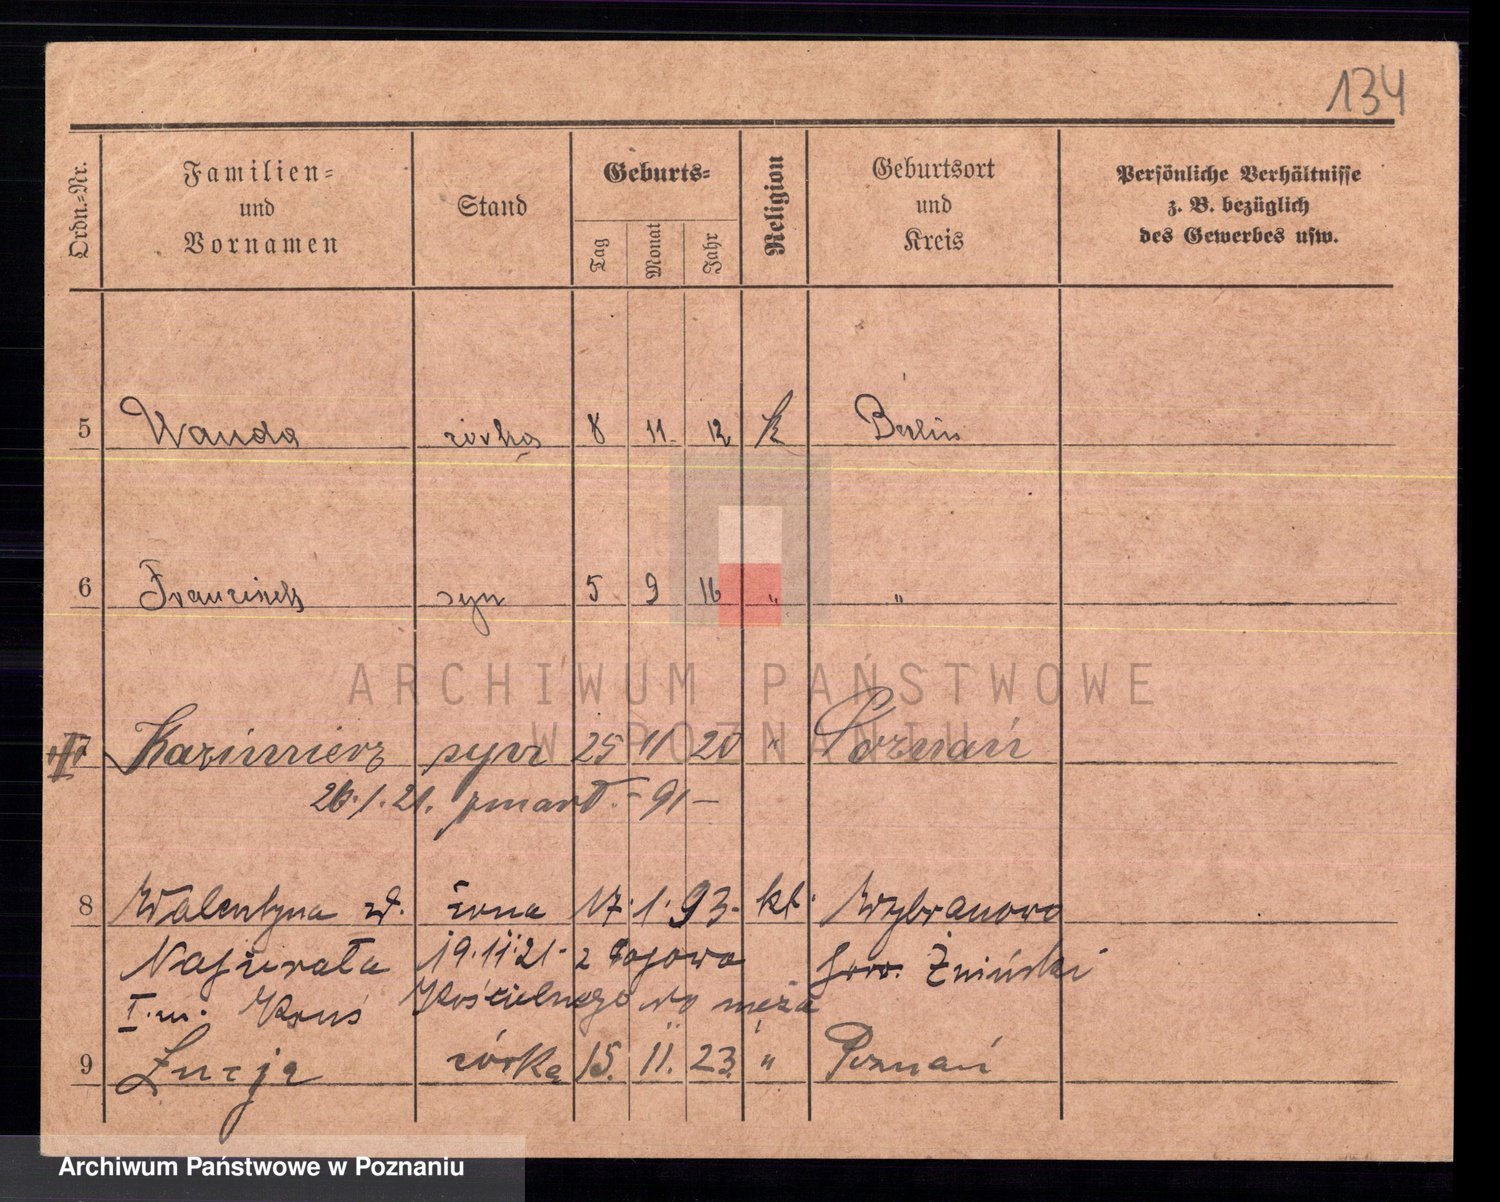 134
Ordn.-Nr.
Familien- und Vornamen
Stand
Geburts-
Tag
Monat
Jahr
Religion
Geburtsort und Kreis
Persönliche Verhältnisse z. B. bezüglich des Gewerbes usw.
5 Wanda córka 8 11 12 k Berlin
6 Franciszek syn 5 9 16 " "
7 Kazimierz syn 25 11 20 " Poznań
26.1.21. zmarł. - 91 -
8 Walentyna z d. żona 17. 1. 93. kt. Wybranowo
19.11.21. z
Żniński
I. m. Kruś Kościelnego do męża
9 Łucja córka 15. 11. 23. " Poznań
ARCHIWUM PAŃSTWOWE
W POZNANIU
Archiwum Państwowe w Poznaniu